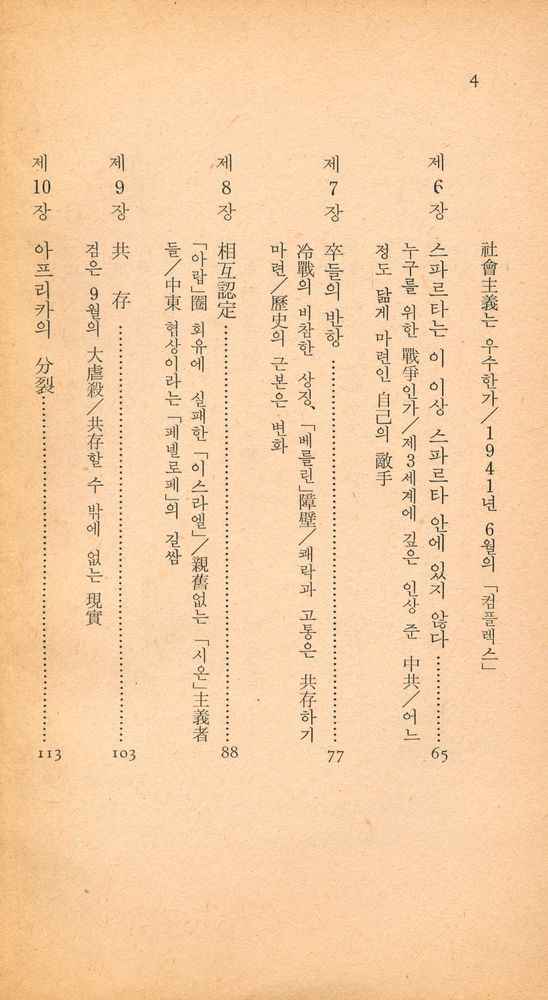 4
社會主義는 우수한가/1941년 6월의 「컴플렉스」
제6장 스파르타는 이 이상 스파르타 안에 있지 않다……65
누구를 위한 戰爭인가/제3세계에 깊은 인상 준 中共/어느
정도 닮게 마련인 自己의 敵手
제7장 卒들의 반항……77
冷戰의 비참한 상징、「베를린」障壁/쾌락과 고통은 共存하기
마련/歷史의 근본은 변화
제8장 相互認定……88
「아랍」圈 회유에 실패한 「이스라엘」/親舊없는 「시온」主義者
들/中東 협상이라는 「페넬로페」의 길쌈
제9장 共存……103
검은 9월의 大虐殺/共存할 수 밖에 없는 現實
제10장 아프리카의 分裂……113